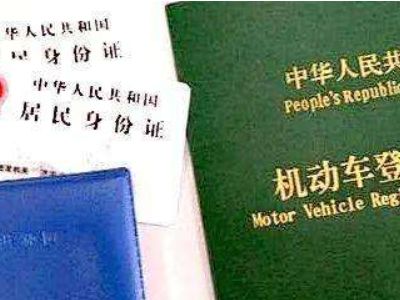 中华人民共和国
居民身份证
中华人民共和国
居民身份证
签发机关
中华人民共
People's Republi
机动车登
Motor Vehicle Reg